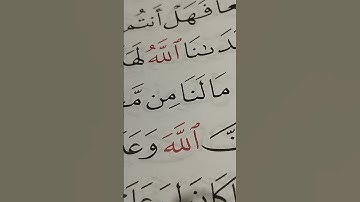 عًا فَهَلْ أَنتُم
دَىٰنَا ٱللَّهُ لَهَ
مَا لَنَا مِن مَّ
نَّ ٱللَّهَ وَعَ
كَانَ لِىَ عَلَ